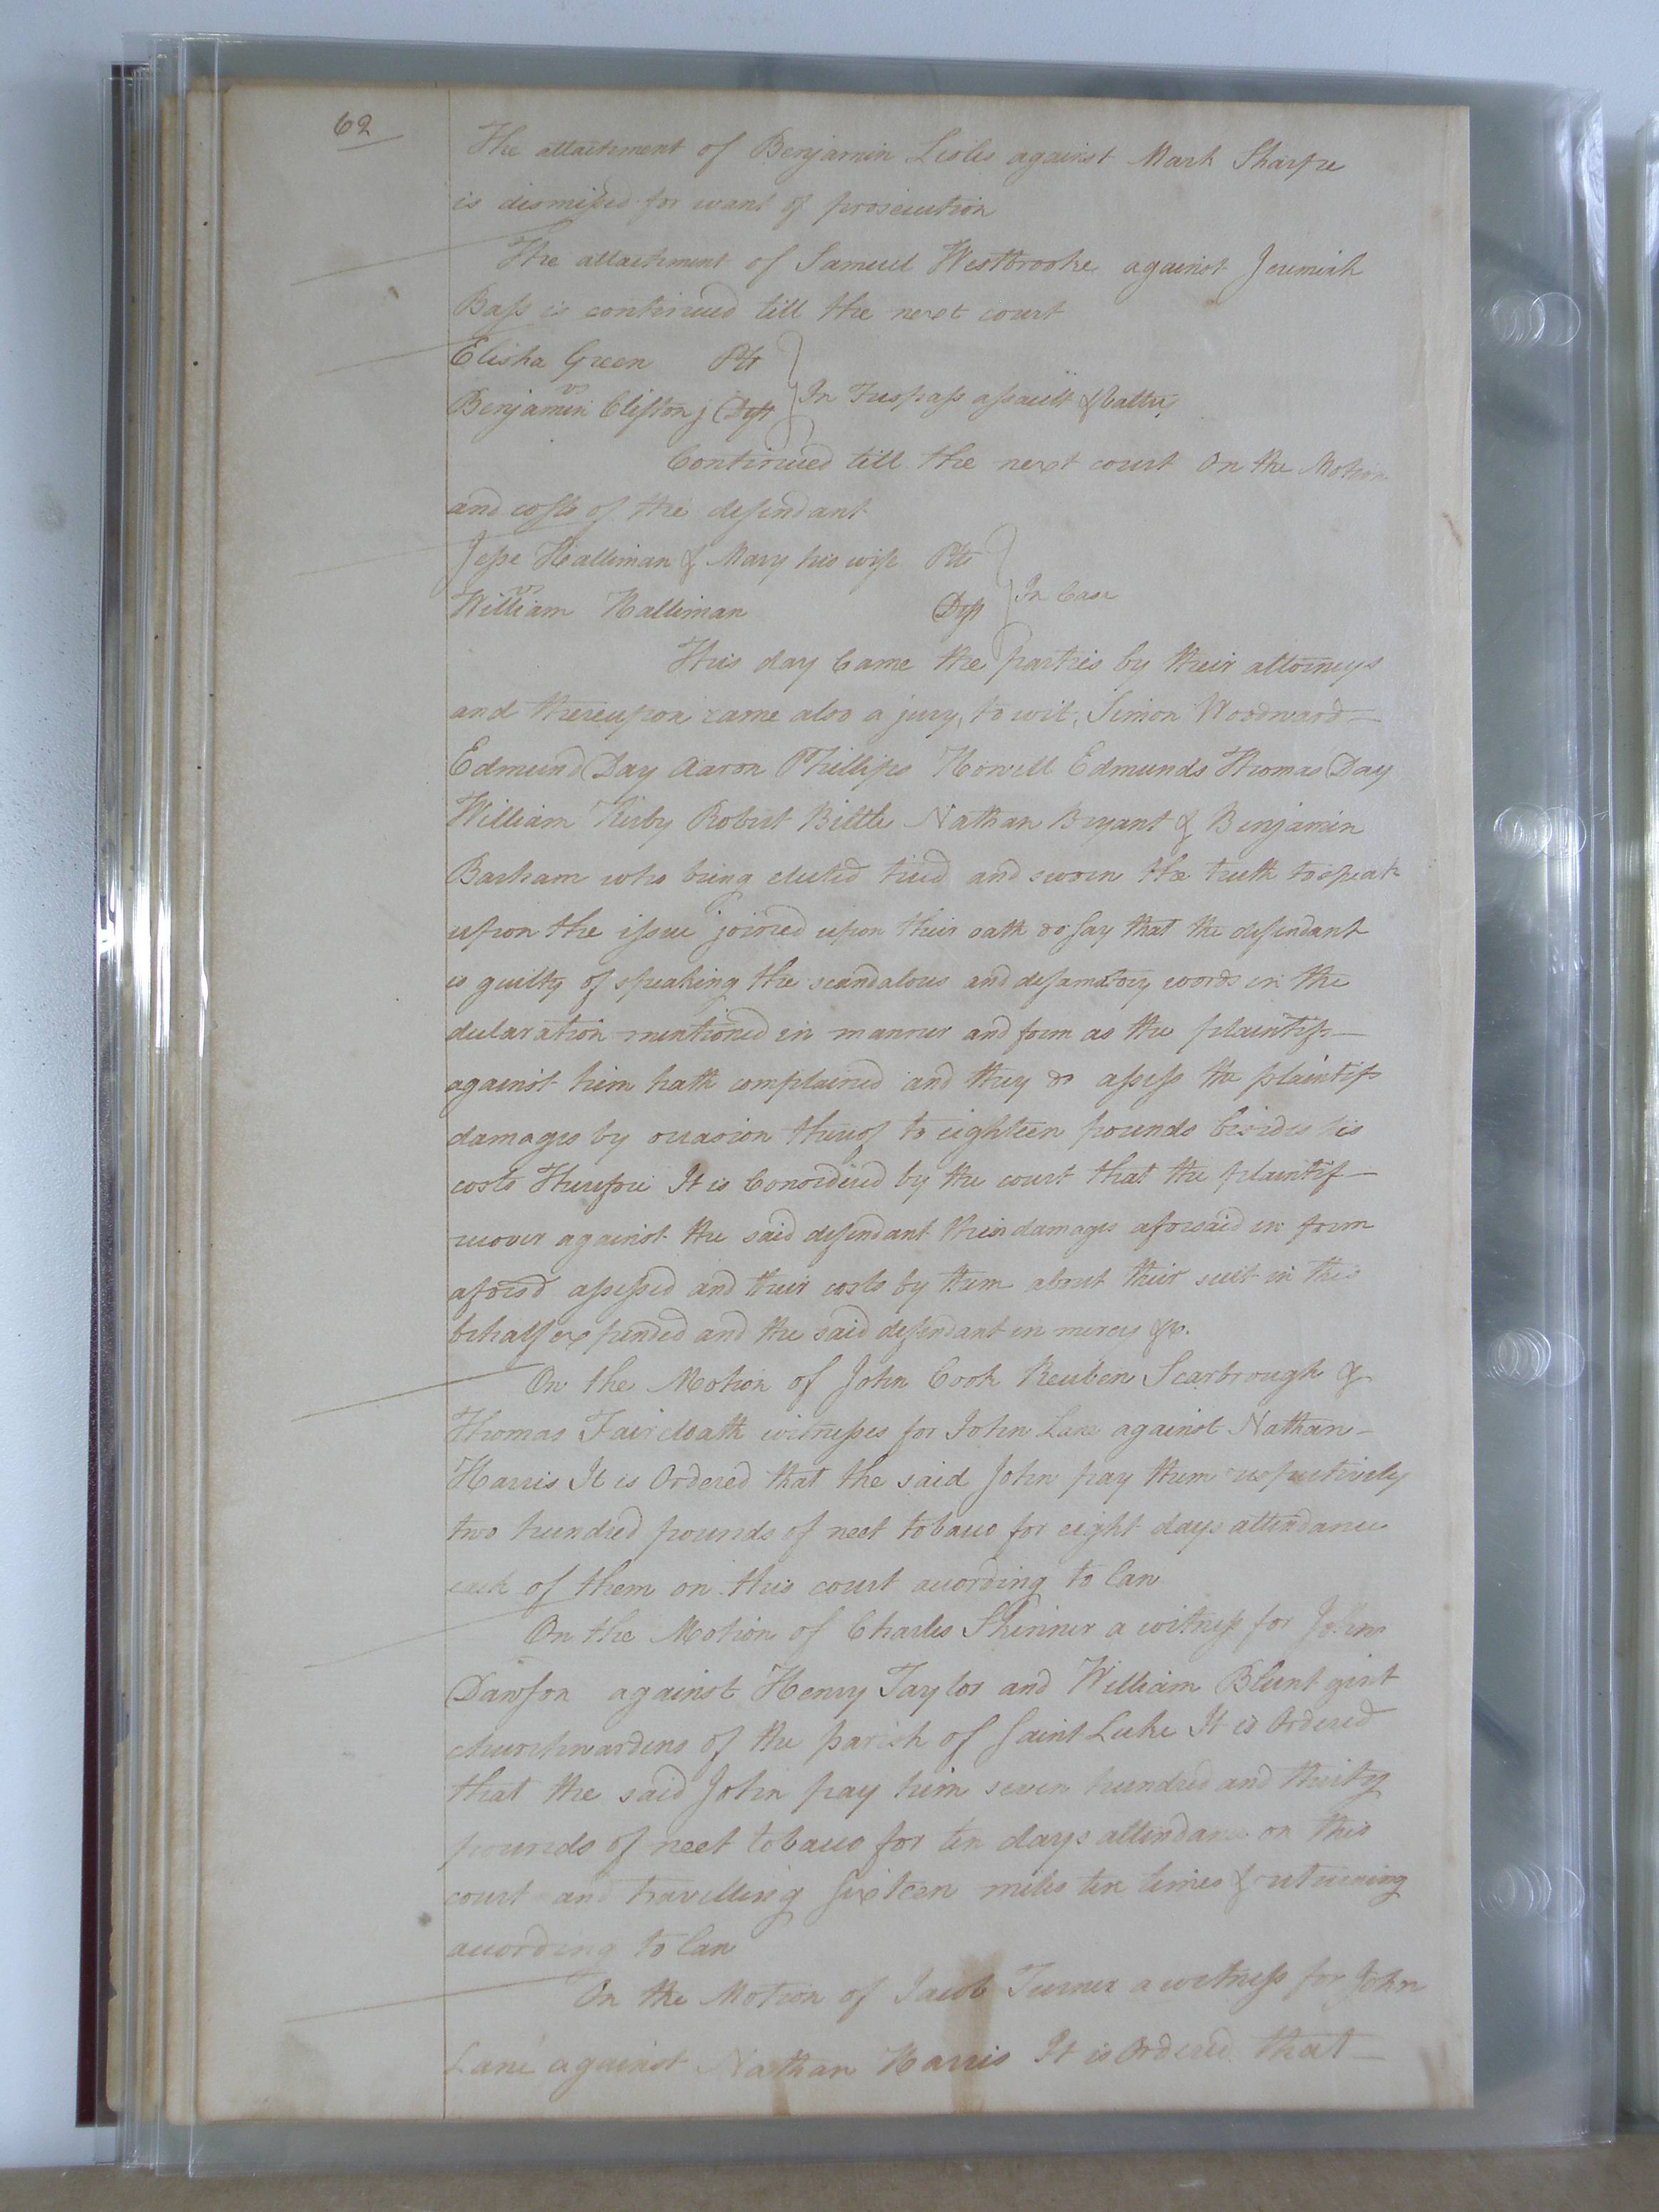 62
The attachment of Benjamin Liles against Mark Sharpe
is dismissed for want of prosecution
The attachment of Samuel Westbrooke against Jeremiah
Bass is continued till the next court
Elisha Green Plt
vs
Benjamin Clifton j Deft
In Trespass assault & Battry
Continued till the next court On the Motion
and costs of the defendant
Jesse Halliman & Mary his wife Plts
vs
William Halliman Deft
In Case
This day Came the parties by their attorneys
and thereupon came also a jury, to wit, Simon Woodward
Edmund Day Aaron Phillips Howell Edmunds Thomas Day
William Kirby Robert Bittle Nathan Bryant & Benjamin
Barham who being elected tried and sworn the truth to speak
upon the issue joined upon their oath do say that the defendant
is guilty of speaking the scandalous and defamatory words in the
declaration mentioned in manner and form as the plaintiff
against him hath complained and they do assess the plaintifs
damages by occasion thereof to eighteen pounds besides his
costs Therefore It is Considered by the court that the plaintif
recover against the said defendant their damages aforesaid in form
aforesd assessed and their costs by them about their suit in this
behalf expended and the said defendant in mercy &c.
On the Motion of John Cook Reuben Scarbrough &
Thomas Faircloath witnesses for John Lane against Nathan
Harris It is Ordered that the said John pay them respectively
two hundred pounds of neet tobacco for eight days attendance
each of them on this court according to law
On the Motion of Charles Skinner a witness for John
Dawson against Henry Taylor and William Blunt gent
churchwardens of the parish of Saint Luke It is Ordered
that the said John pay him seven hundred and thirty
pounds of neet tobacco for ten days attendance on this
court and travelling sixteen miles ten times & returning
according to law
On the Motion of Jacob Turner a witness for John
Lane against Nathan Harris It is Ordered that